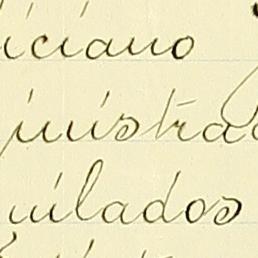 iciano
inistra
uilados